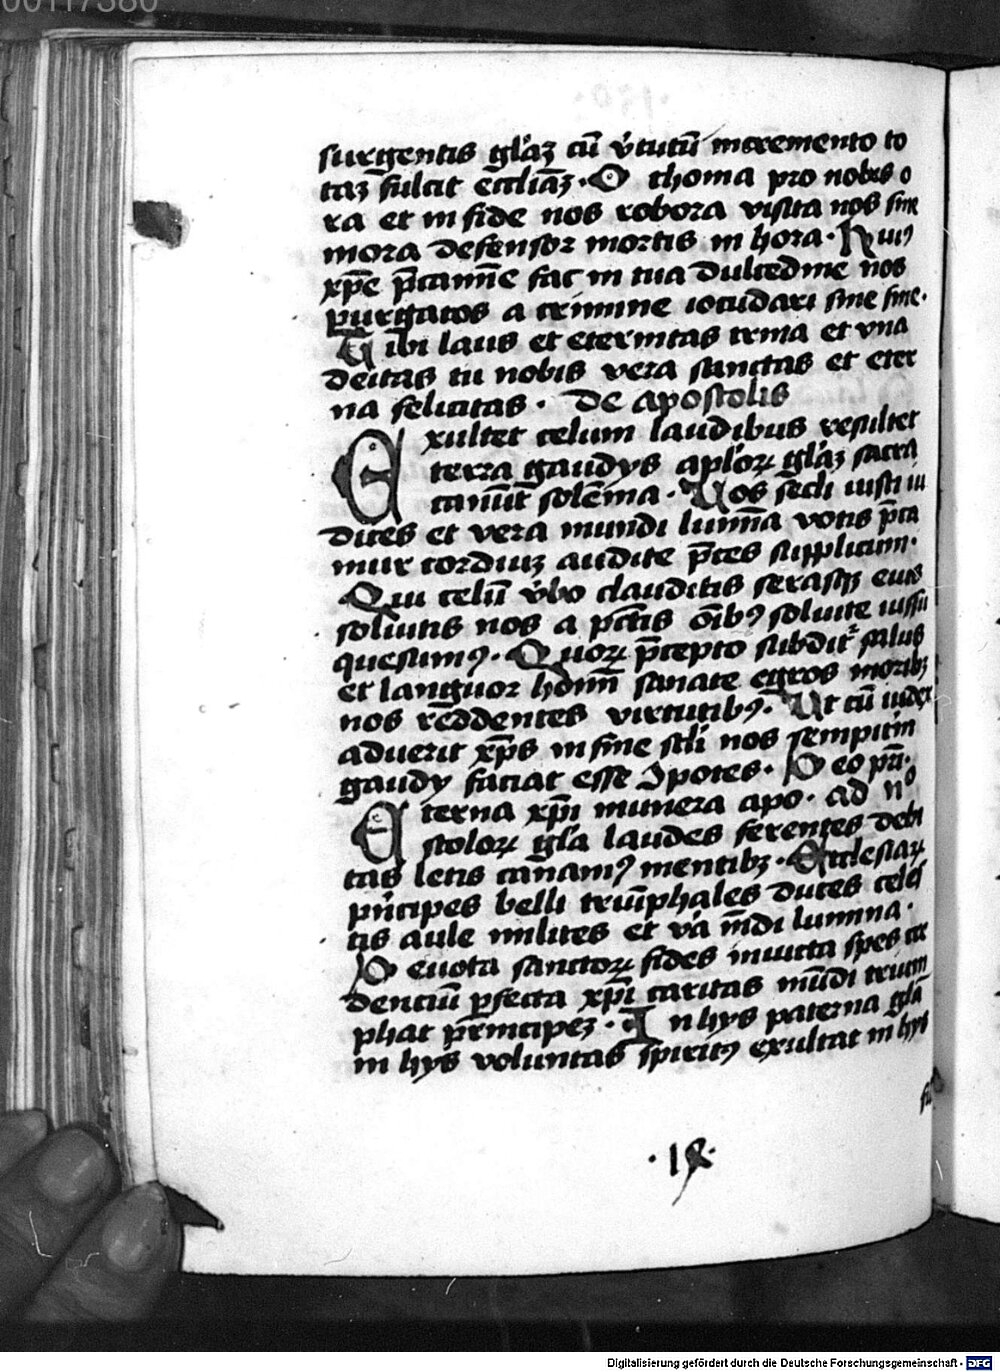 00117380
surgentis gła᷒ʒ cū v̓tutū incremento to
taʒ fulcit eccliāʒ · O thoma pro nobis o
ra et in fide nos robora visita nos sine
mora defensor mortis in hora · Huiꝰ
xp̄e p̄camīe fac in tua dulcedine nos
purgatos a crimine iocūdari sine fine ·
Tibi laus et eternitas trina et vna
deitas tu nobis vera sanctitas et eter
na felicitas · De apostolis
Exultet celum laudibus resultet
terra gaudys apl̓oꝝ gl̓aʒ sacra
canūt solēnia · Uos sēcli iusti iu
dices et vera mundi lumīa votis p̄ca
mur cordiuʒ audite p̄ces supplicum ·
Qui celū v̓bo clauditis serasqʒ eius
soluitis nos a pctīs oībꝰ soluite iussu
quesumꝰ · Quoꝝ p̄cepto subdit᷑ salus
et languor hom̄ sanate egros moribʒ
nos reddentes virtutibꝰ · Ut cū iudex
aduerit xp̄s in fine scl̄i nos sempit̓ni
gaudy faciat esse ꝯpotes · Deo pr̄i ·
Eterna xp̄i munera apo · ad nᵒ
stoloꝝ gl̓a laudes ferentes debi
tas letis canamꝰ mentibʒ · Ecclesiaꝝ
p̓ncipes belli triūphales duces celes
tis aule milites et v̓a mūdi lumina ·
Deuota sanctoꝝ fides inuicta spes cre
denciū ꝑfecta xp̄i caritas mūdi trium
phat principeʒ · In hys paterna gl̓a
in hys voluntas spiritꝰ exultat in hys
fi